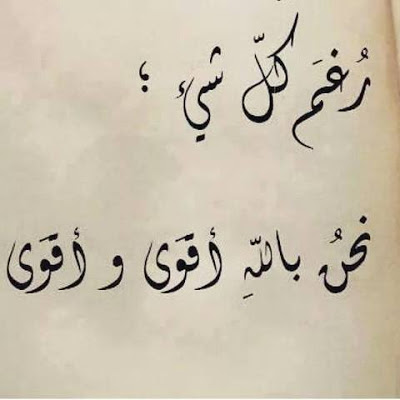 رُغَم كلّ شيءٍ ؛
نحنُ باللّهِ أقوَى و أقوَى